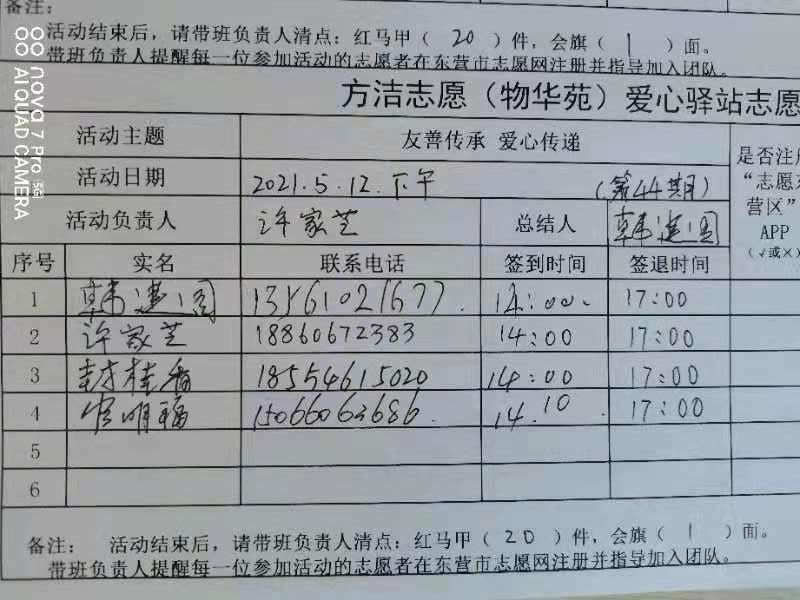 备注:
活动结束后，请带班负责人清点：红马甲（ 20 ）件，会旗（ 1 ）面。
带班负责人提醒每一位参加活动的志愿者在东营市志愿网注册并指导加入团队。
方洁志愿（物华苑）爱心驿站志愿
活动主题 友善传承 爱心传递
是否注册
“志愿东
营区”
APP
（√或×）
活动日期 2021.5.12.下午 (第44期)
活动负责人 许家芝 总结人 韩进国
序号 实名 联系电话 签到时间 签退时间
1 韩进国 13561021677. 14:00. 17:00
2 许家芝 18860672383 14:00 17:00
3 封桂香 18554615020 14:00 17:00
4 明福 15066063686. 14.10 17:00
5
6
备注: 活动结束后，请带班负责人清点：红马甲（ 20 ）件，会旗（ 1 ）面。
带班负责人提醒每一位参加活动的志愿者在东营市志愿网注册并指导加入团队。
nova 7 Pro 5G
AI QUAD CAMERA